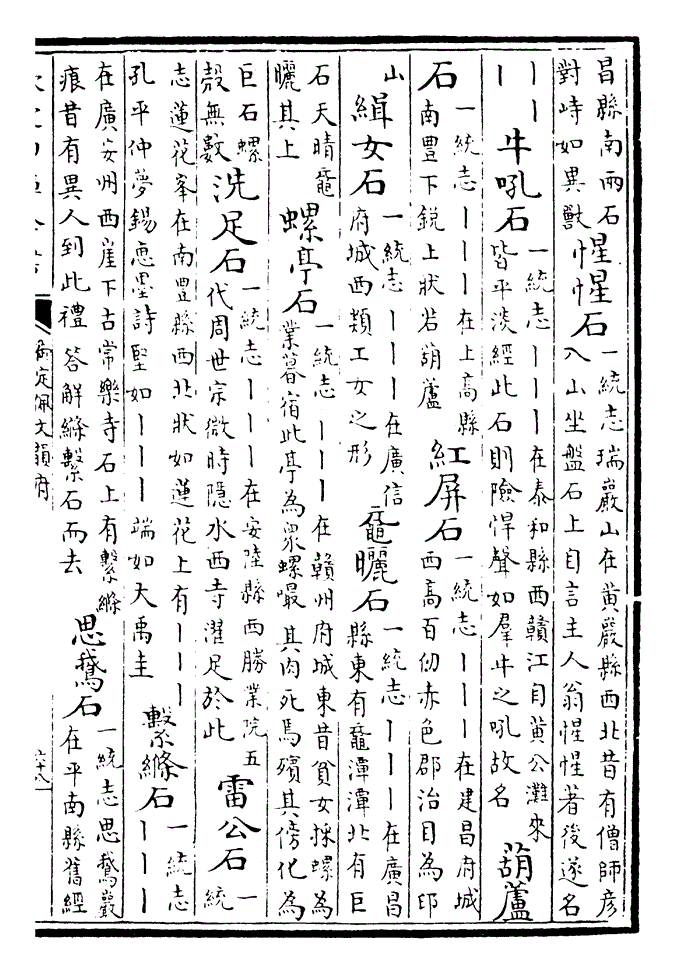 昌縣南兩石
對峙如異獸
惺惺石
一統志瑞巖山在黄巖縣西北昔有僧師彦
入山坐盤石上自言主人翁惺惺著後遂名
丨丨
丨
牛吼石
一統志丨丨丨在泰和縣西贛江自黄公灘來
皆平淡經此石則險悍聲如羣牛之吼故名
葫蘆
石
一統志丨丨丨在上高縣
南豐下銳上狀若葫蘆
紅屏石
一統志丨丨丨在建昌府城
西高百仞赤色郡治目為印
山
緝女石
一統志丨丨丨在廣信
府城西類工女之形
黿曬石
一統志丨丨丨在廣昌
縣東有黿潭潭北有巨
石天晴黿
曬其上
螺亭石
一統志丨丨丨在贛州府城東昔貧女採螺為
業暮宿此亭為衆螺嘬其肉死焉殯其傍化為
巨石螺
殻無數
洗足石
一統志丨丨丨在安陸縣西勝業院五
代周世宗微時隱水西寺濯足於此
雷公石
一
統
志蓮花峯在南豐縣西北狀如蓮花上有丨丨丨
孔平仲夢錫惠墨詩堅如丨丨丨端如大禹圭
繫絛石
一統志
丨丨丨
在廣安州西崖下古常樂寺石上有繫絛
痕昔有異人到此禮答解絛繫石而去
思鵞石
一統志思鵞巖
在平南縣舊經
御定佩文韻府